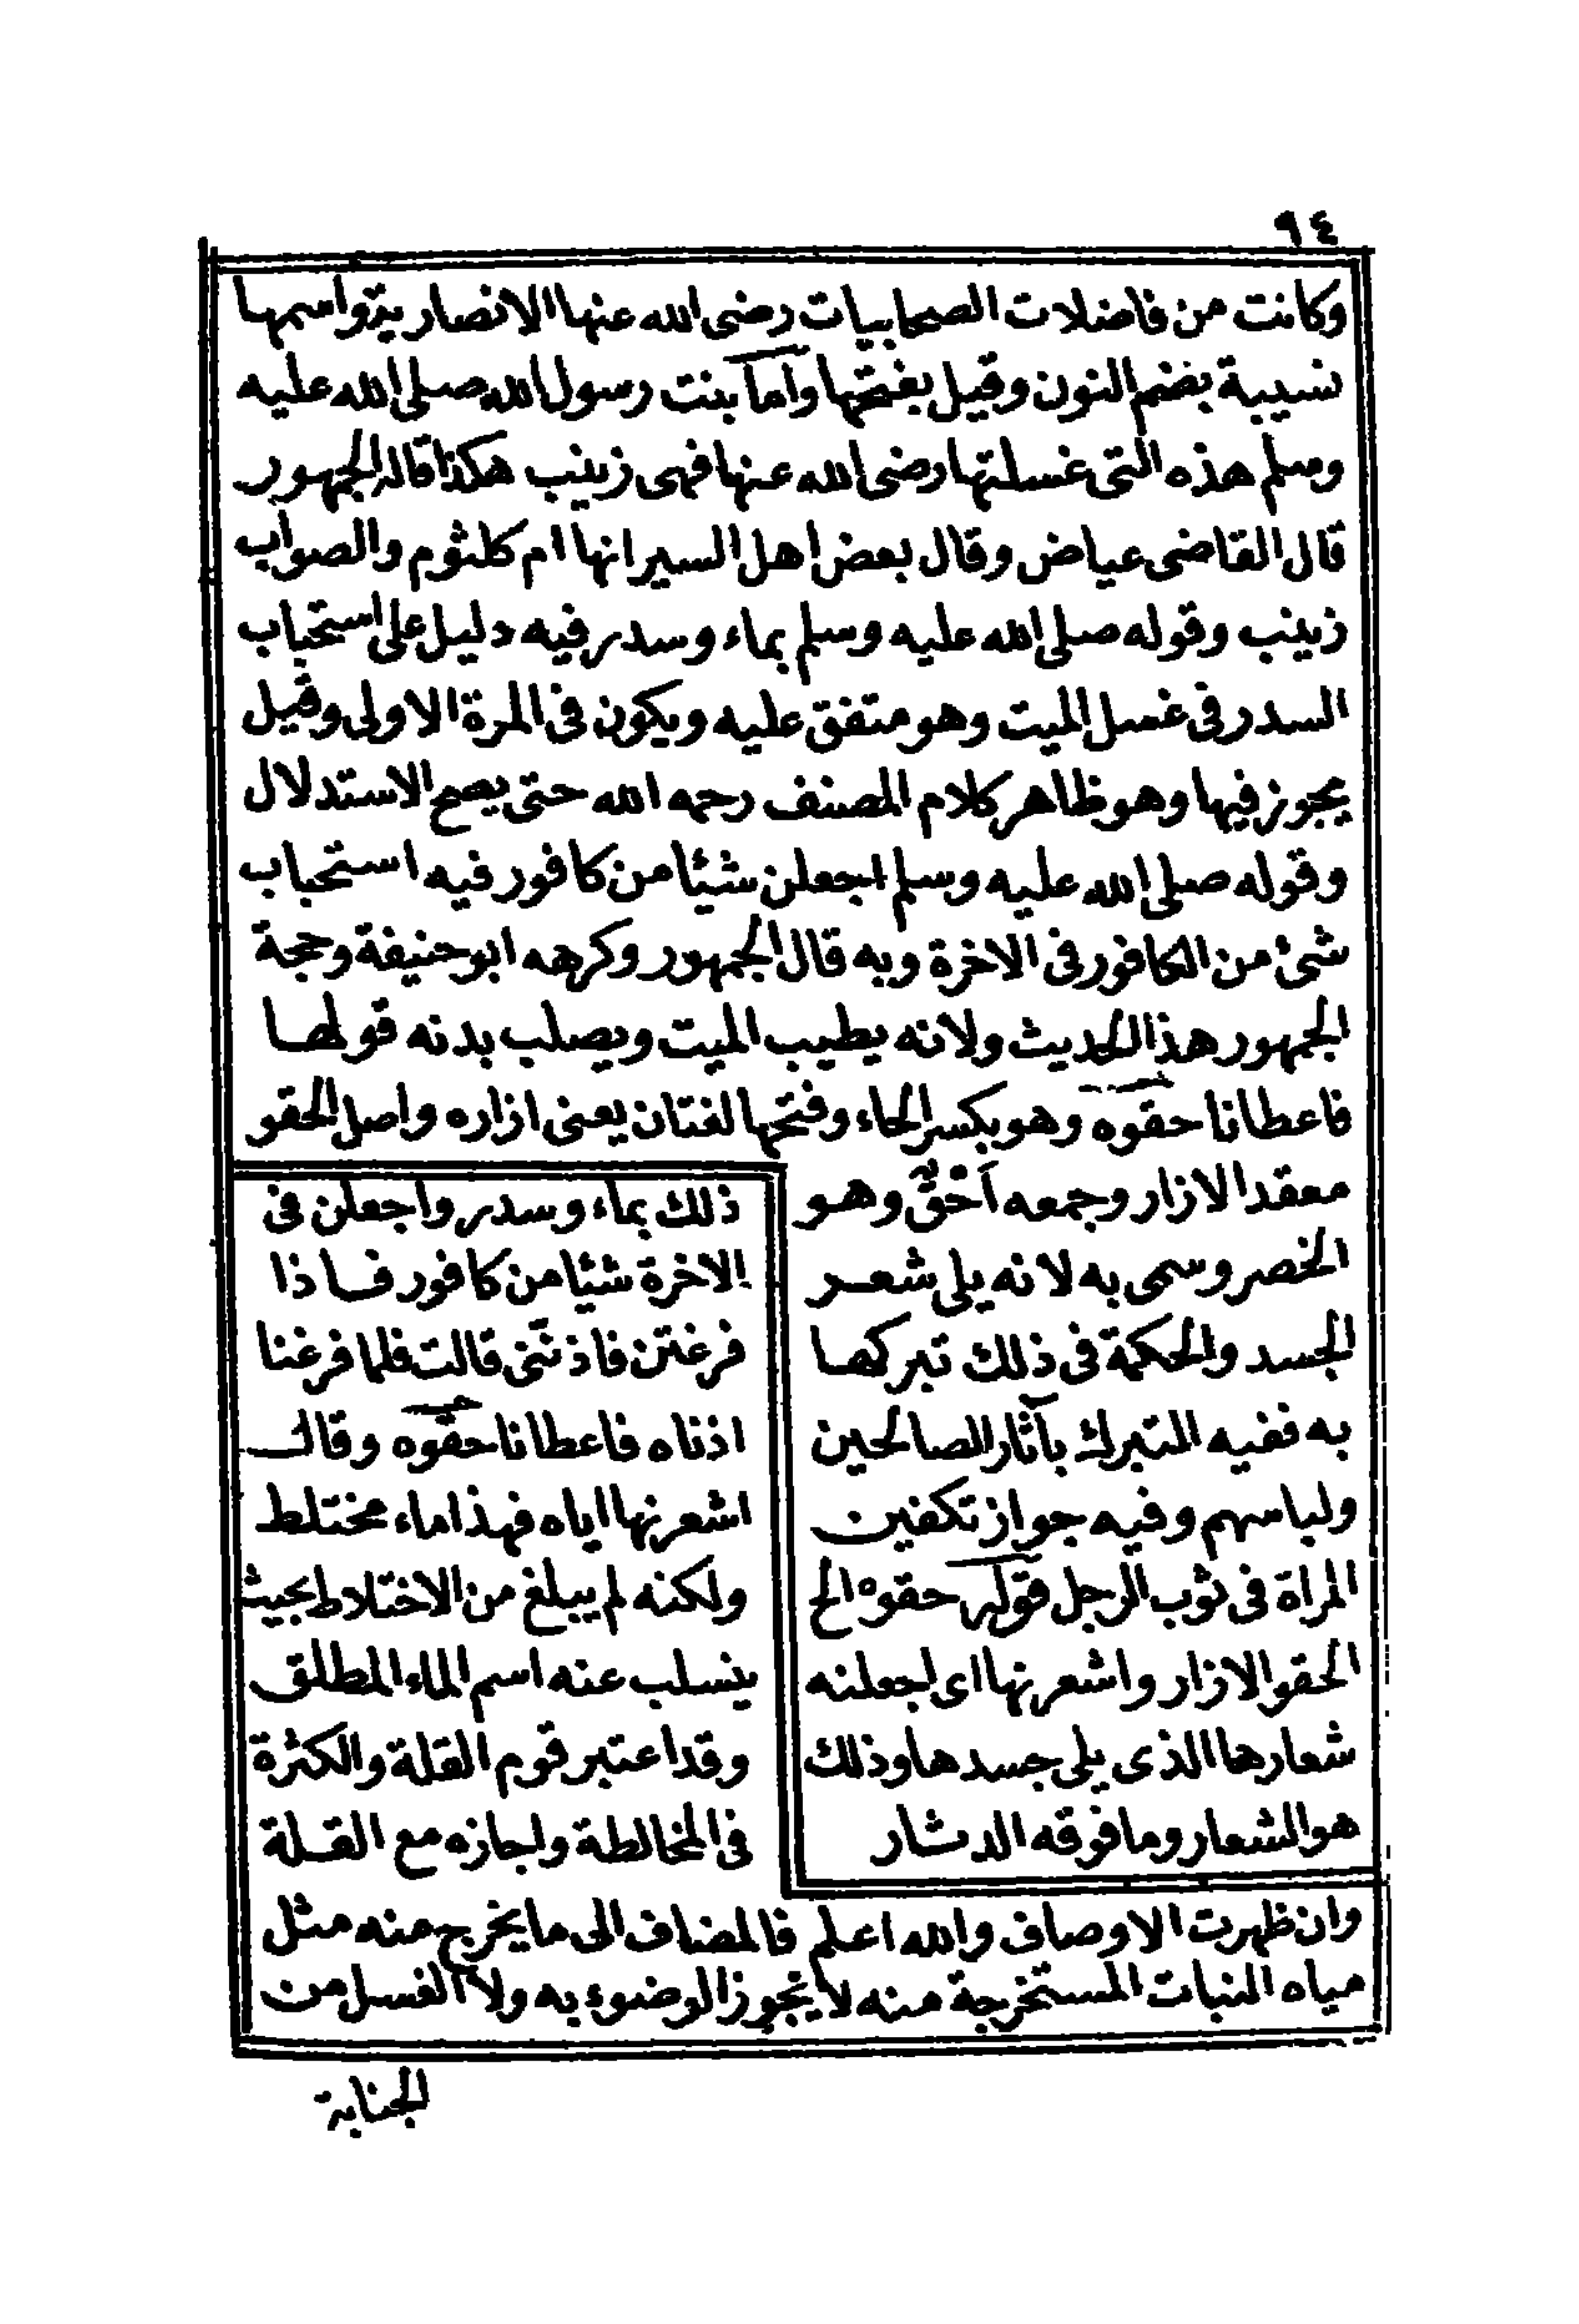 ٩٤
وكانت من فاضلات الصحابيات رضى الله عنها الانصارية واسمها
نسيبة بضم النون وقيل بفتحها واما بنت رسول الله صلى الله عليه
وسلم هذه التى غسلتها رضى الله عنها فهى زينب هكذا قاله الجمهور
قال القاضى عياض وقال بعض اهل السير انها ام كلثوم والصواب
زينب وقوله صلى الله عليه وسلم بماء وسدر فيه دليل على استحباب
السدر فى غسل الميت وهو متفق عليه ويكون فى المرة الاولى وقيل
يجوز فيها وهو ظاهر كلام المصنف رحمه الله حتى يصح الاستدلال
وقوله صلى الله عليه وسلم اجعلن شيئا من كافور فيه استحباب
شئ من الكافور فى الاخرة وبه قال الجمهور وكرهه ابو حنيفة وحجة
الجمهور هذا الحديث ولانه يطيب الميت ويصلب بدنه قولها
فاعطانا حقوه وهو بكسر الحاء وفتحها لغتان يعنى ازاره واصل الحقو
معقد الازار وجمعه اَحْقٌ وهو
الخصر وسمى به لانه يلى شعر
الجسد والحكمة فى ذلك تبركها
به ففيه التبرك بآثار الصالحين
ولباسهم وفيه جواز تكفين
المراة فى ثوب الرجل قوله حقوه الخ
الحقو الازار واشعرنها اى اجعلنه
شعارها الذى يلى جسدها وذلك
هو الشعار وما فوقه الدثار
ذلك بماء وسدر واجعلن فى
الاخرة شيئا من كافور فاذا
فرغتن فاذننى قالت فلما فرغنا
اذناه فاعطانا حقوه وقال
اشعرنها اياه فهذا ماء مختلط
ولكنه لم يبلغ من الاختلاط بحيث
ينسلب عنه اسم الماء المطلق
وقد اعتبر قوم القلة والكثرة
فى المخالطة واجازه مع القلة
وان ظهرت الاوصاف والله اعلم فالمضاف الى ما يخرج منه مثل
مياه النبات المستخرجة منه لا يجوز الوضوء به ولا الغسل من
الجنابة